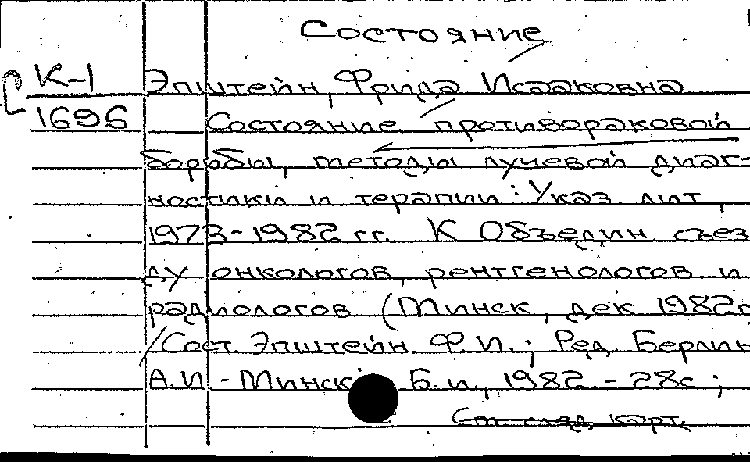 Состояние
К-1 Эпштейн, Фрида Исааковна
1696 Состояние противораковой
борьбы, методы лучевой диаг-
ностики и терапии: Указ. лит.,
1973-1982 гг. К Объедин. съез-
ду онкологов, рентгенологов и
радиологов (Минск, дек. 1982г
/Сост. Эпштейн Ф.И.; Ред. Берлин
А.И. - Минск: Б.и., 1982 - 28с;
См. след. карт.